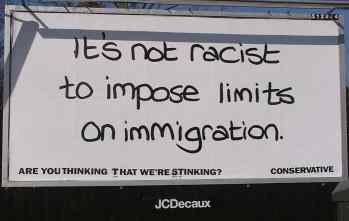 It's not racist
to impose limits
on immigration.
ARE YOU THINKING THAT WE'RE STINKING? CONSERVATIVE
JCDecaux